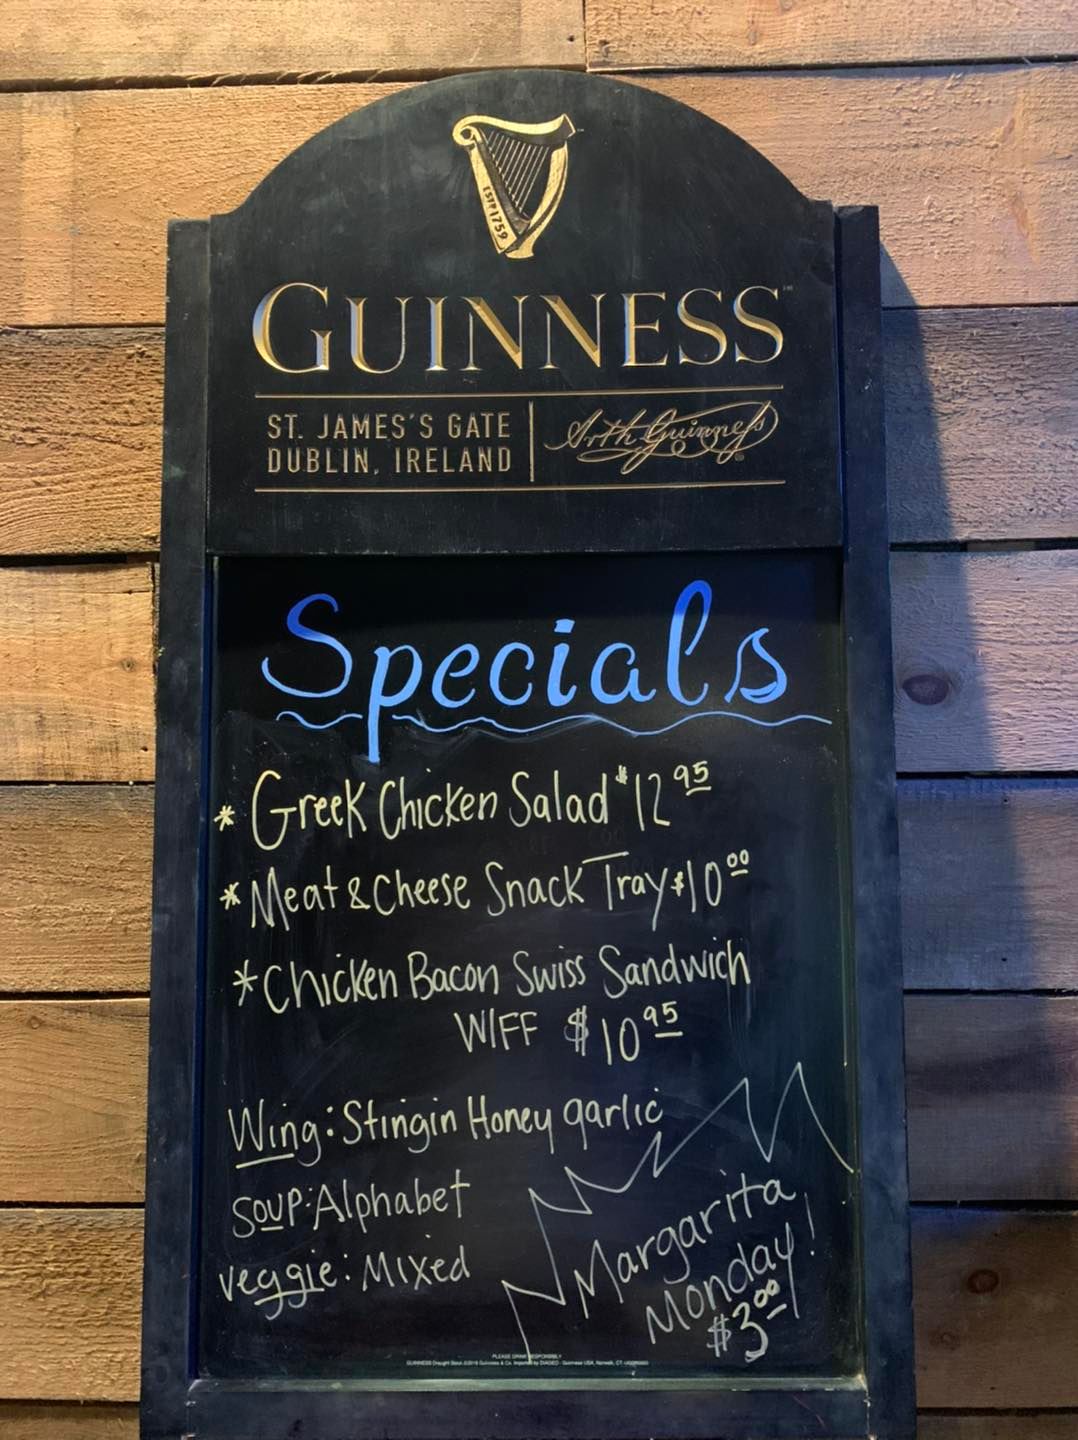 ESTD 1759
GUINNESS™
ST. JAMES'S GATE
DUBLIN, IRELAND
Arth Guinness
Specials
* Greek Chicken Salad $12 95
* Meat & Cheese Snack Tray $10 00
* Chicken Bacon Swiss Sandwich
W/FF $10 95
Wing: Stingin Honey garlic
Soup: Alphabet
veggie: Mixed
Margarita
Monday!
$3.00
PLEASE DRINK RESPONSIBLY